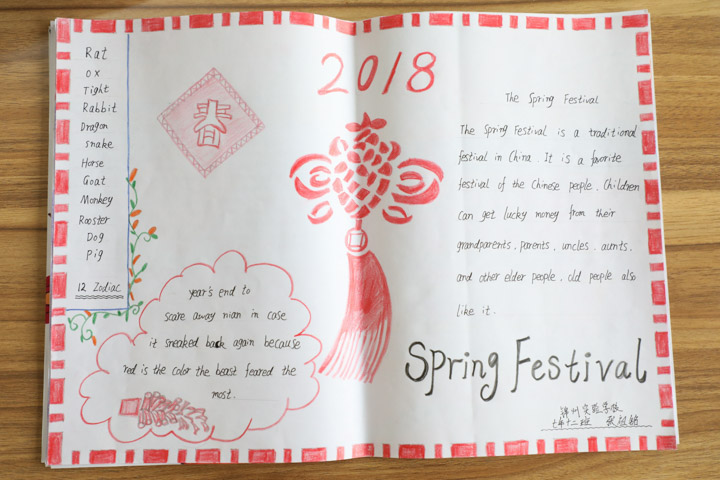 Rat
ox
Tight
Rabbit
Dragon
snake
Horse
Goat
Monkey
Rooster
Dog
Pig
12 Zodiac
春
year's end to
scare away nian in case
it sneaked back again because
red is the color the beast feared the
most.
2018
The Spring Festival
The Spring Festival is a traditional
festival in China. It is a favorite
festival of the Chinese people. Children
can get lucky money from their
grandparents, parents, uncles, aunts,
and other elder people, old people also
like it.
Spring Festival
州实验学校
七年十二班 张